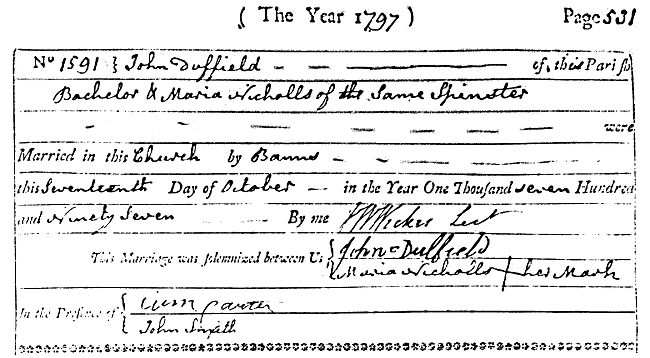 ( The Year 1797 ) Page 531
No 1591 } John Duffield - - — of this Parish
Bachelor & Maria Nicholls of the Same Spinster
were
Married in this Church by Banns
this Seventeenth Day of October - in the Year One Thousand seven Hundred
and Ninety Seven By me
This Marriage was solemnized between Us { John Duffield
Maria Nicholls + her Mark
In the Presence of { Carter
John Smith